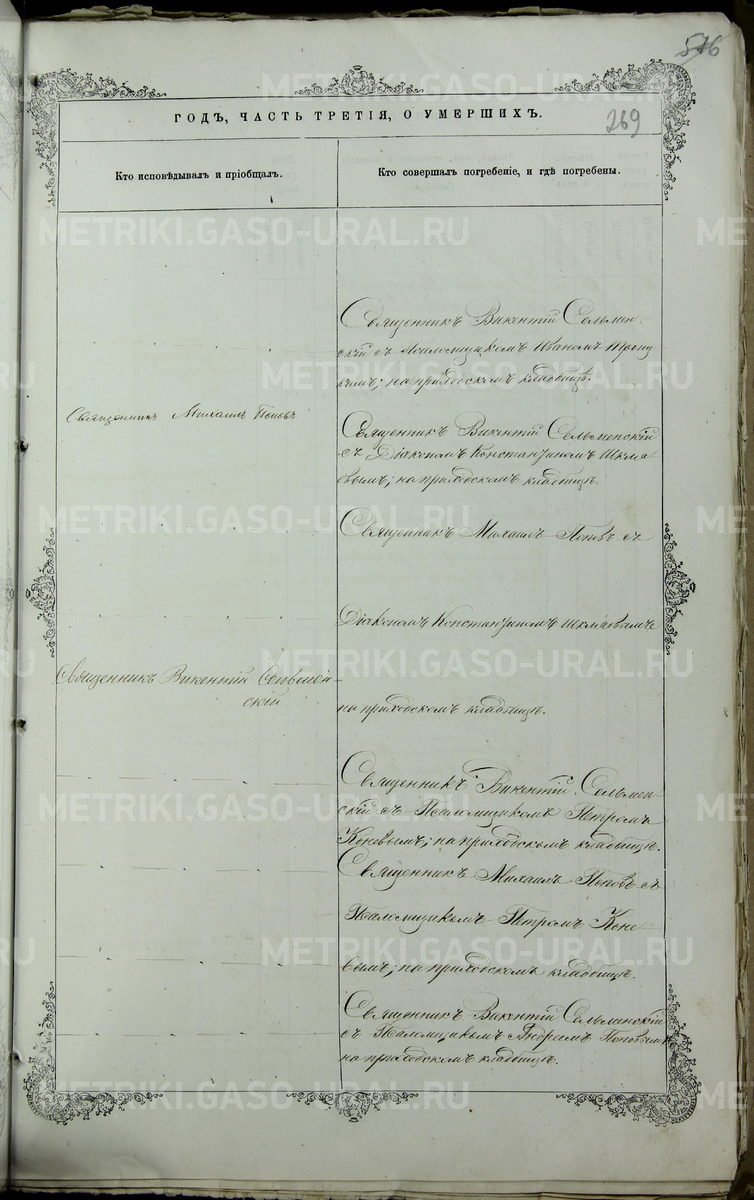 516
ГОДЪ, ЧАСТЬ ТРЕТІЯ, О УМЕРШИХЪ.
269
Кто исповѣдывалъ и пріобщалъ.
Кто совершалъ погребеніе, и гдѣ погребены.
Священникъ Михаилъ Поповъ
Священникъ Викентій Сельмен-
скій
Священникъ Викентій Сельмен-
скій съ Псаломщикомъ Иваномъ
кимъ; на приходскомъ кладбищѣ.
Священникъ Викентій Сельменскій
съ Діакономъ Константиномъ Шкля
евымъ; на приходскомъ кладбищѣ.
Священникъ Михаилъ Поповъ съ
Діакономъ Константиномъ Шкляевымъ
на приходскомъ кладбищѣ.
Священникъ Викентій Сельмен
скій съ Псаломщикомъ Петромъ
Коневымъ; на приходскомъ кладбищѣ.
Священникъ Михаилъ Поповъ съ
Псаломщикомъ Петромъ Коне
вымъ; на приходскомъ кладбищѣ.
Священникъ Викентій Сельменскій
съ Псаломщикомъ Андреемъ Поповымъ
на приходскомъ кладбищѣ.
METRIKI.GASO-URAL.RU